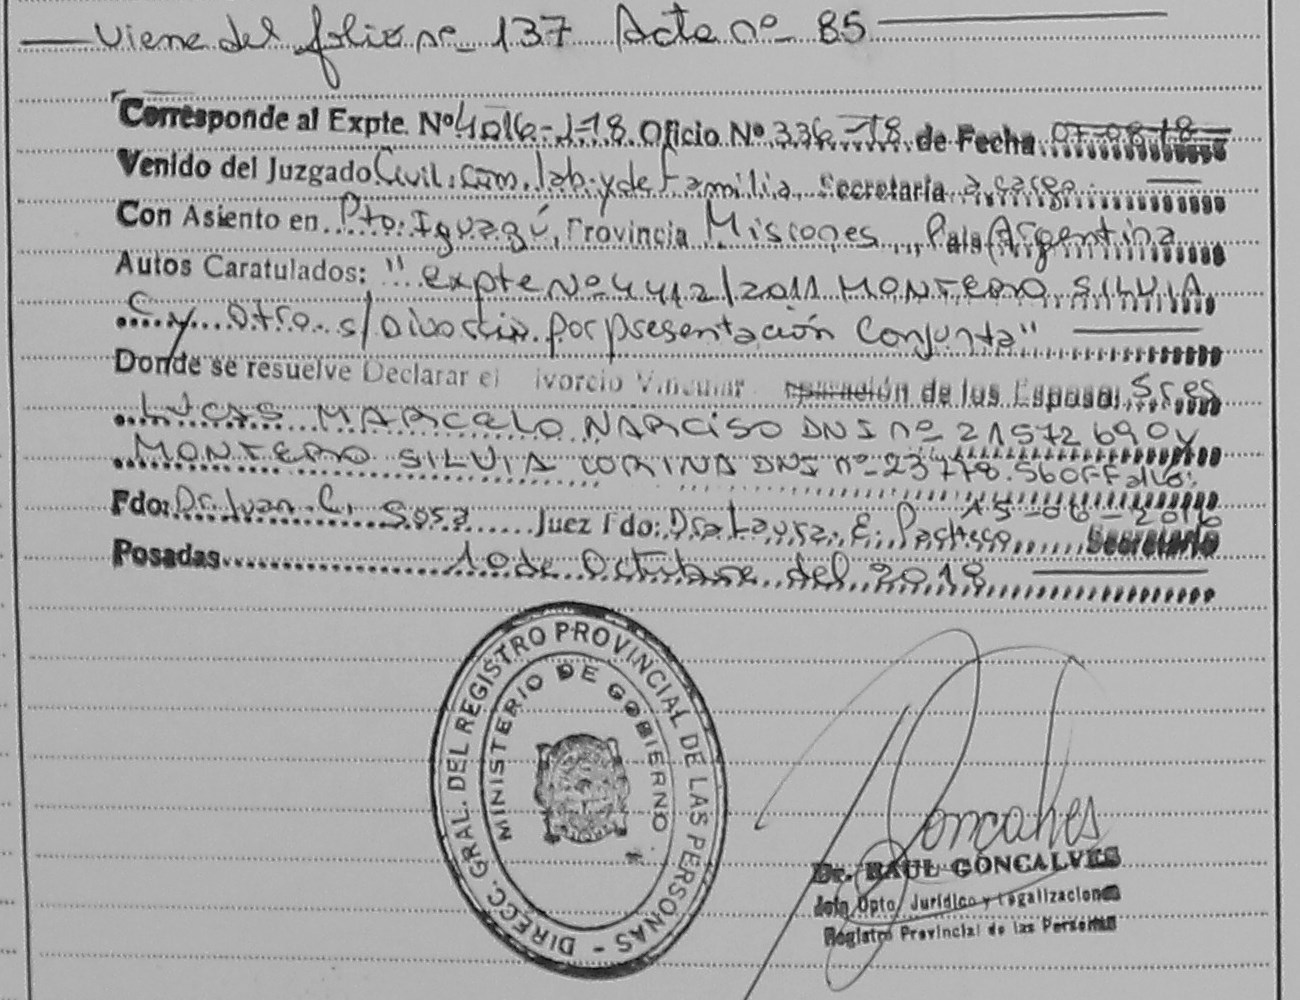 Viene del folio nº 137 Acta nº 85
Corresponde al Expte. Nº 4016-J-18 Oficio Nº 336-18 de Fecha 07-08-18
Venido del Juzgado Civil, Com, lab. y de Familia, Secretaria a cargo
Con Asiento en Pto. Iguazú, Provincia Misiones, País Argentina
Autos Caratulados: "expte Nº 4412/2011 MONTERO SILVIA
C. y otro s/Divorcio por presentación Conjunta"
Donde se resuelve Declarar el ivorcio Vincular de los Esposos Sres
LUCAS MARCELO NARCISO DNI nº 21572690 y
MONTERO SILVIA CORINA DNI nº 23778.560 FFallo:
15-06-2016
Fdo: Dr. Juan C. Sosa Juez Fdo: Dra Laura E. Pacheco Secretario
Posadas 10 de Octubre del 2018
DIRECC. GRAL. DEL REGISTRO PROVINCIAL DE LAS PERSONAS -
MINISTERIO DE GOBIERNO
Goncalves
Dr. RAUL GONCALVES
Jefe Dpto. Jurídico y Legalizaciones
Registro Provincial de las Personas